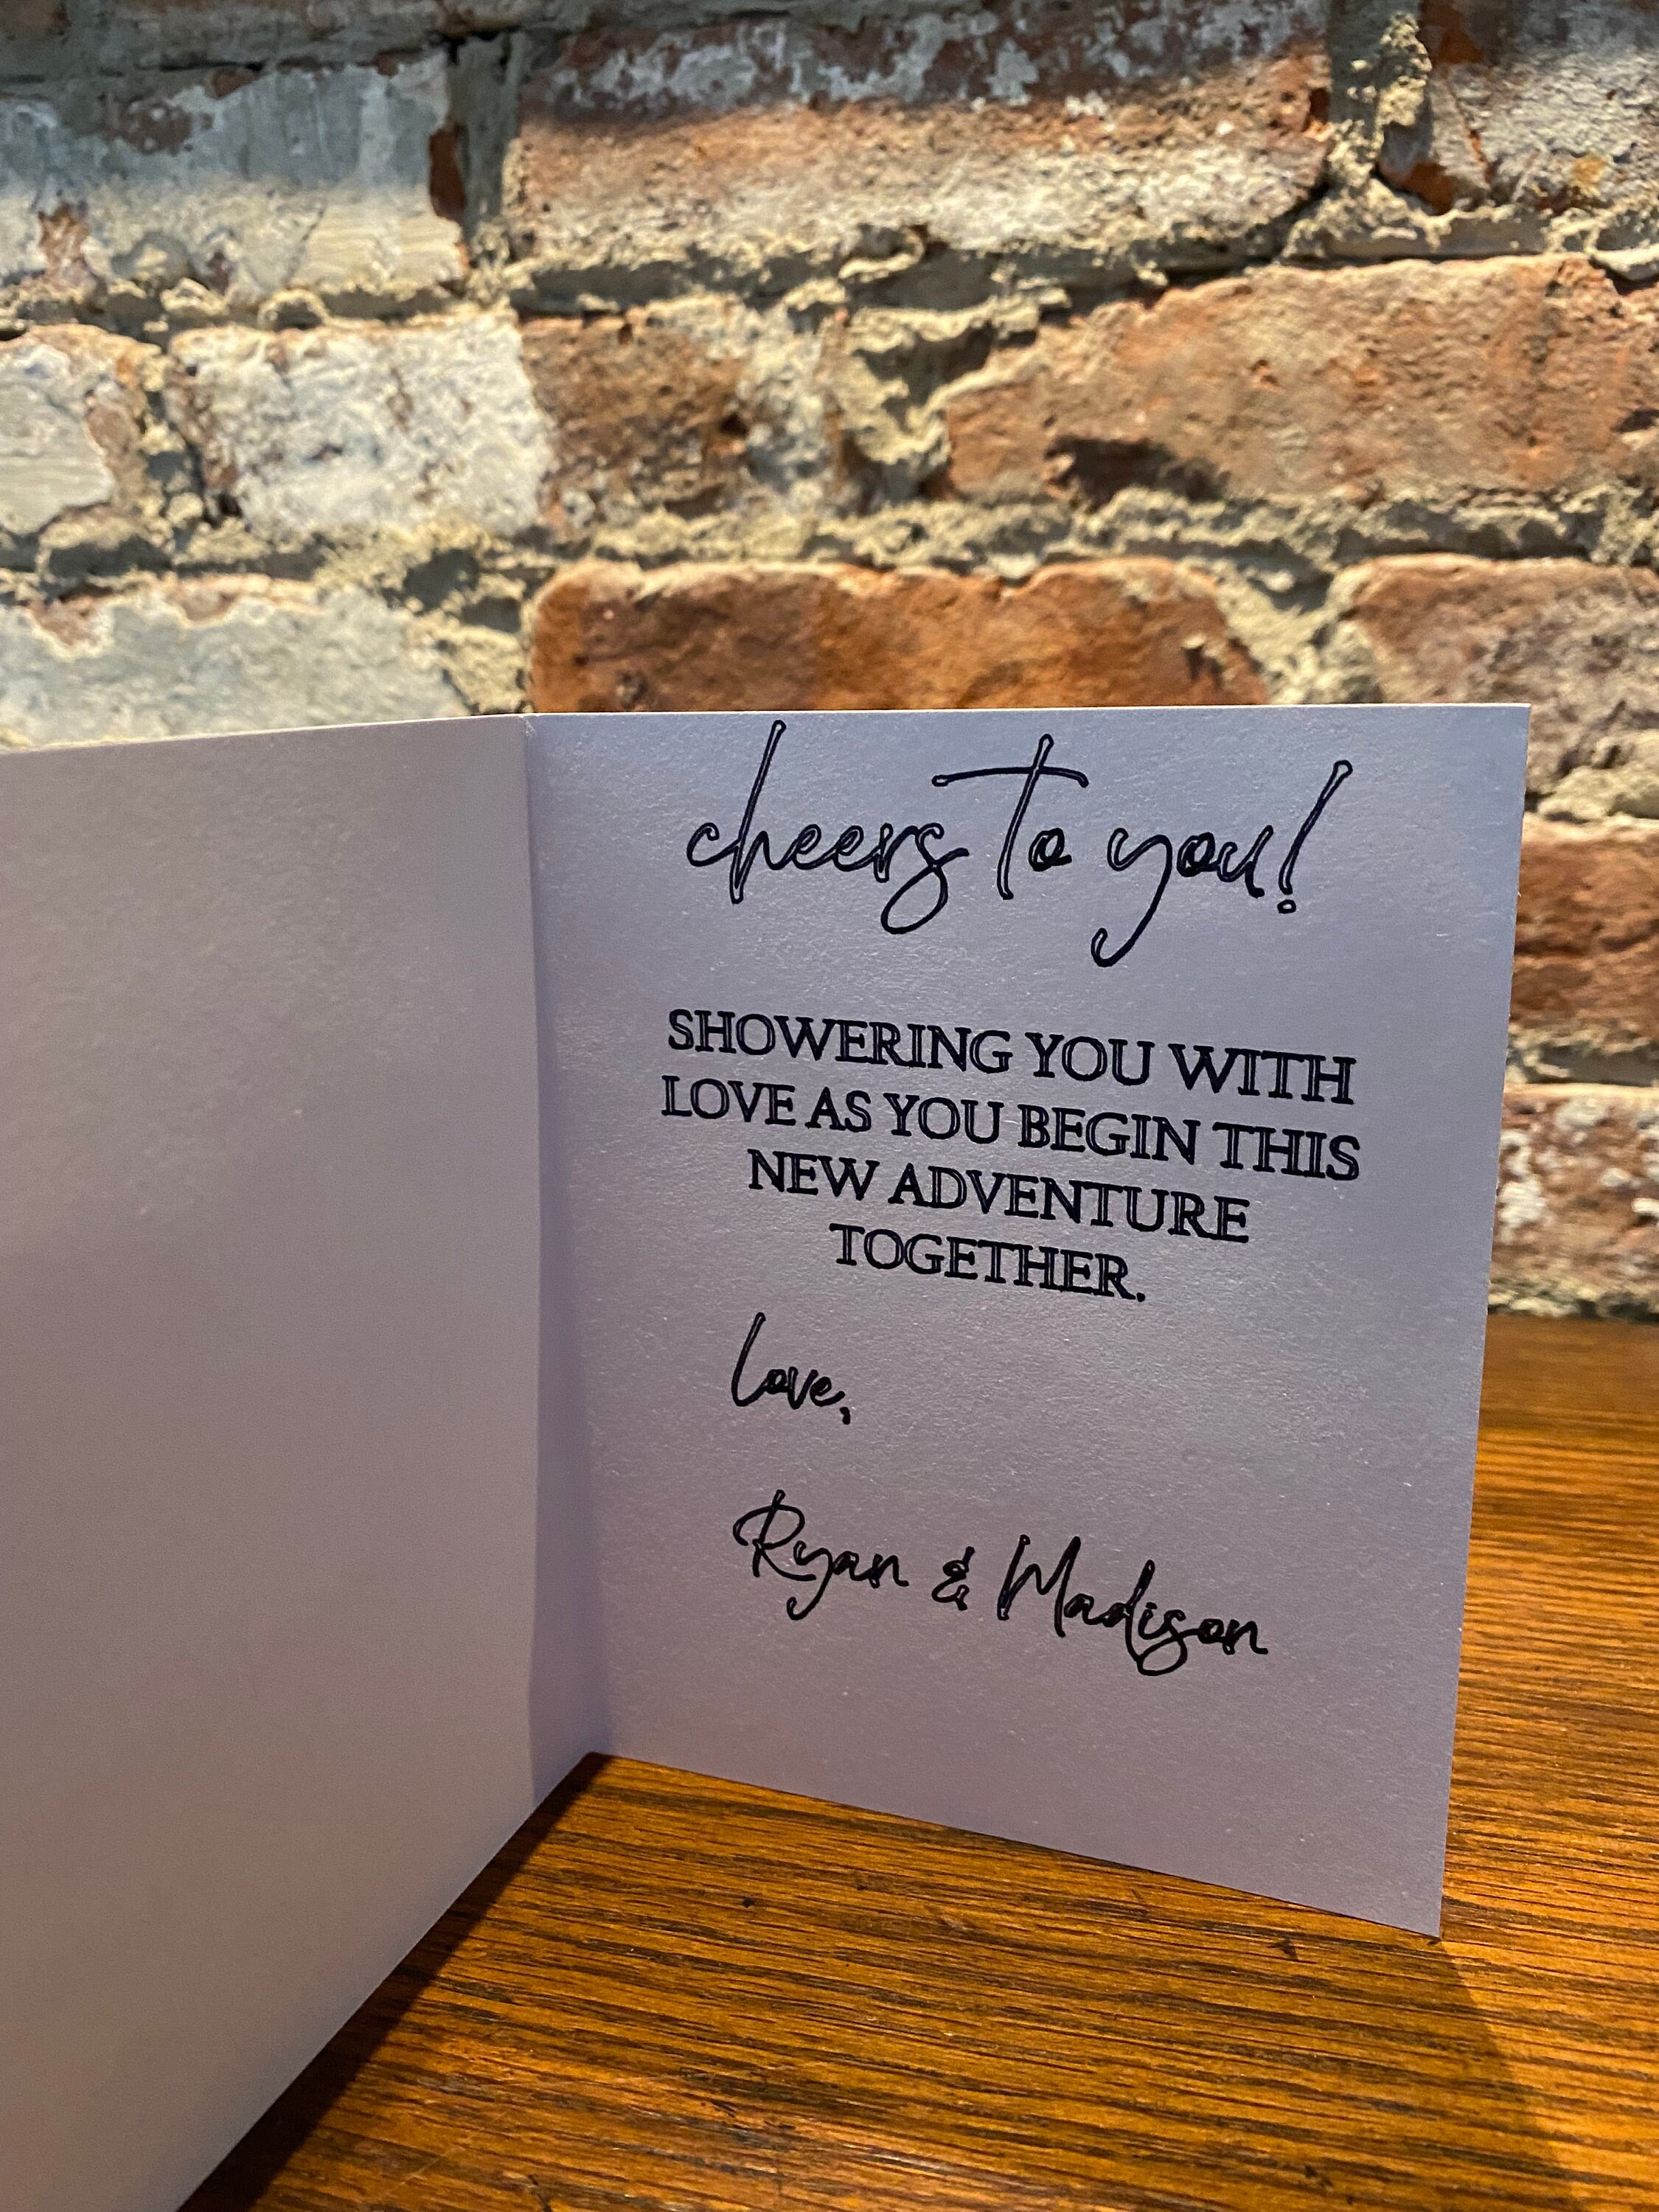 cheers to you!
SHOWERING YOU WITH
LOVE AS YOU BEGIN THIS
NEW ADVENTURE
TOGETHER.
Love,
Ryan & Madison